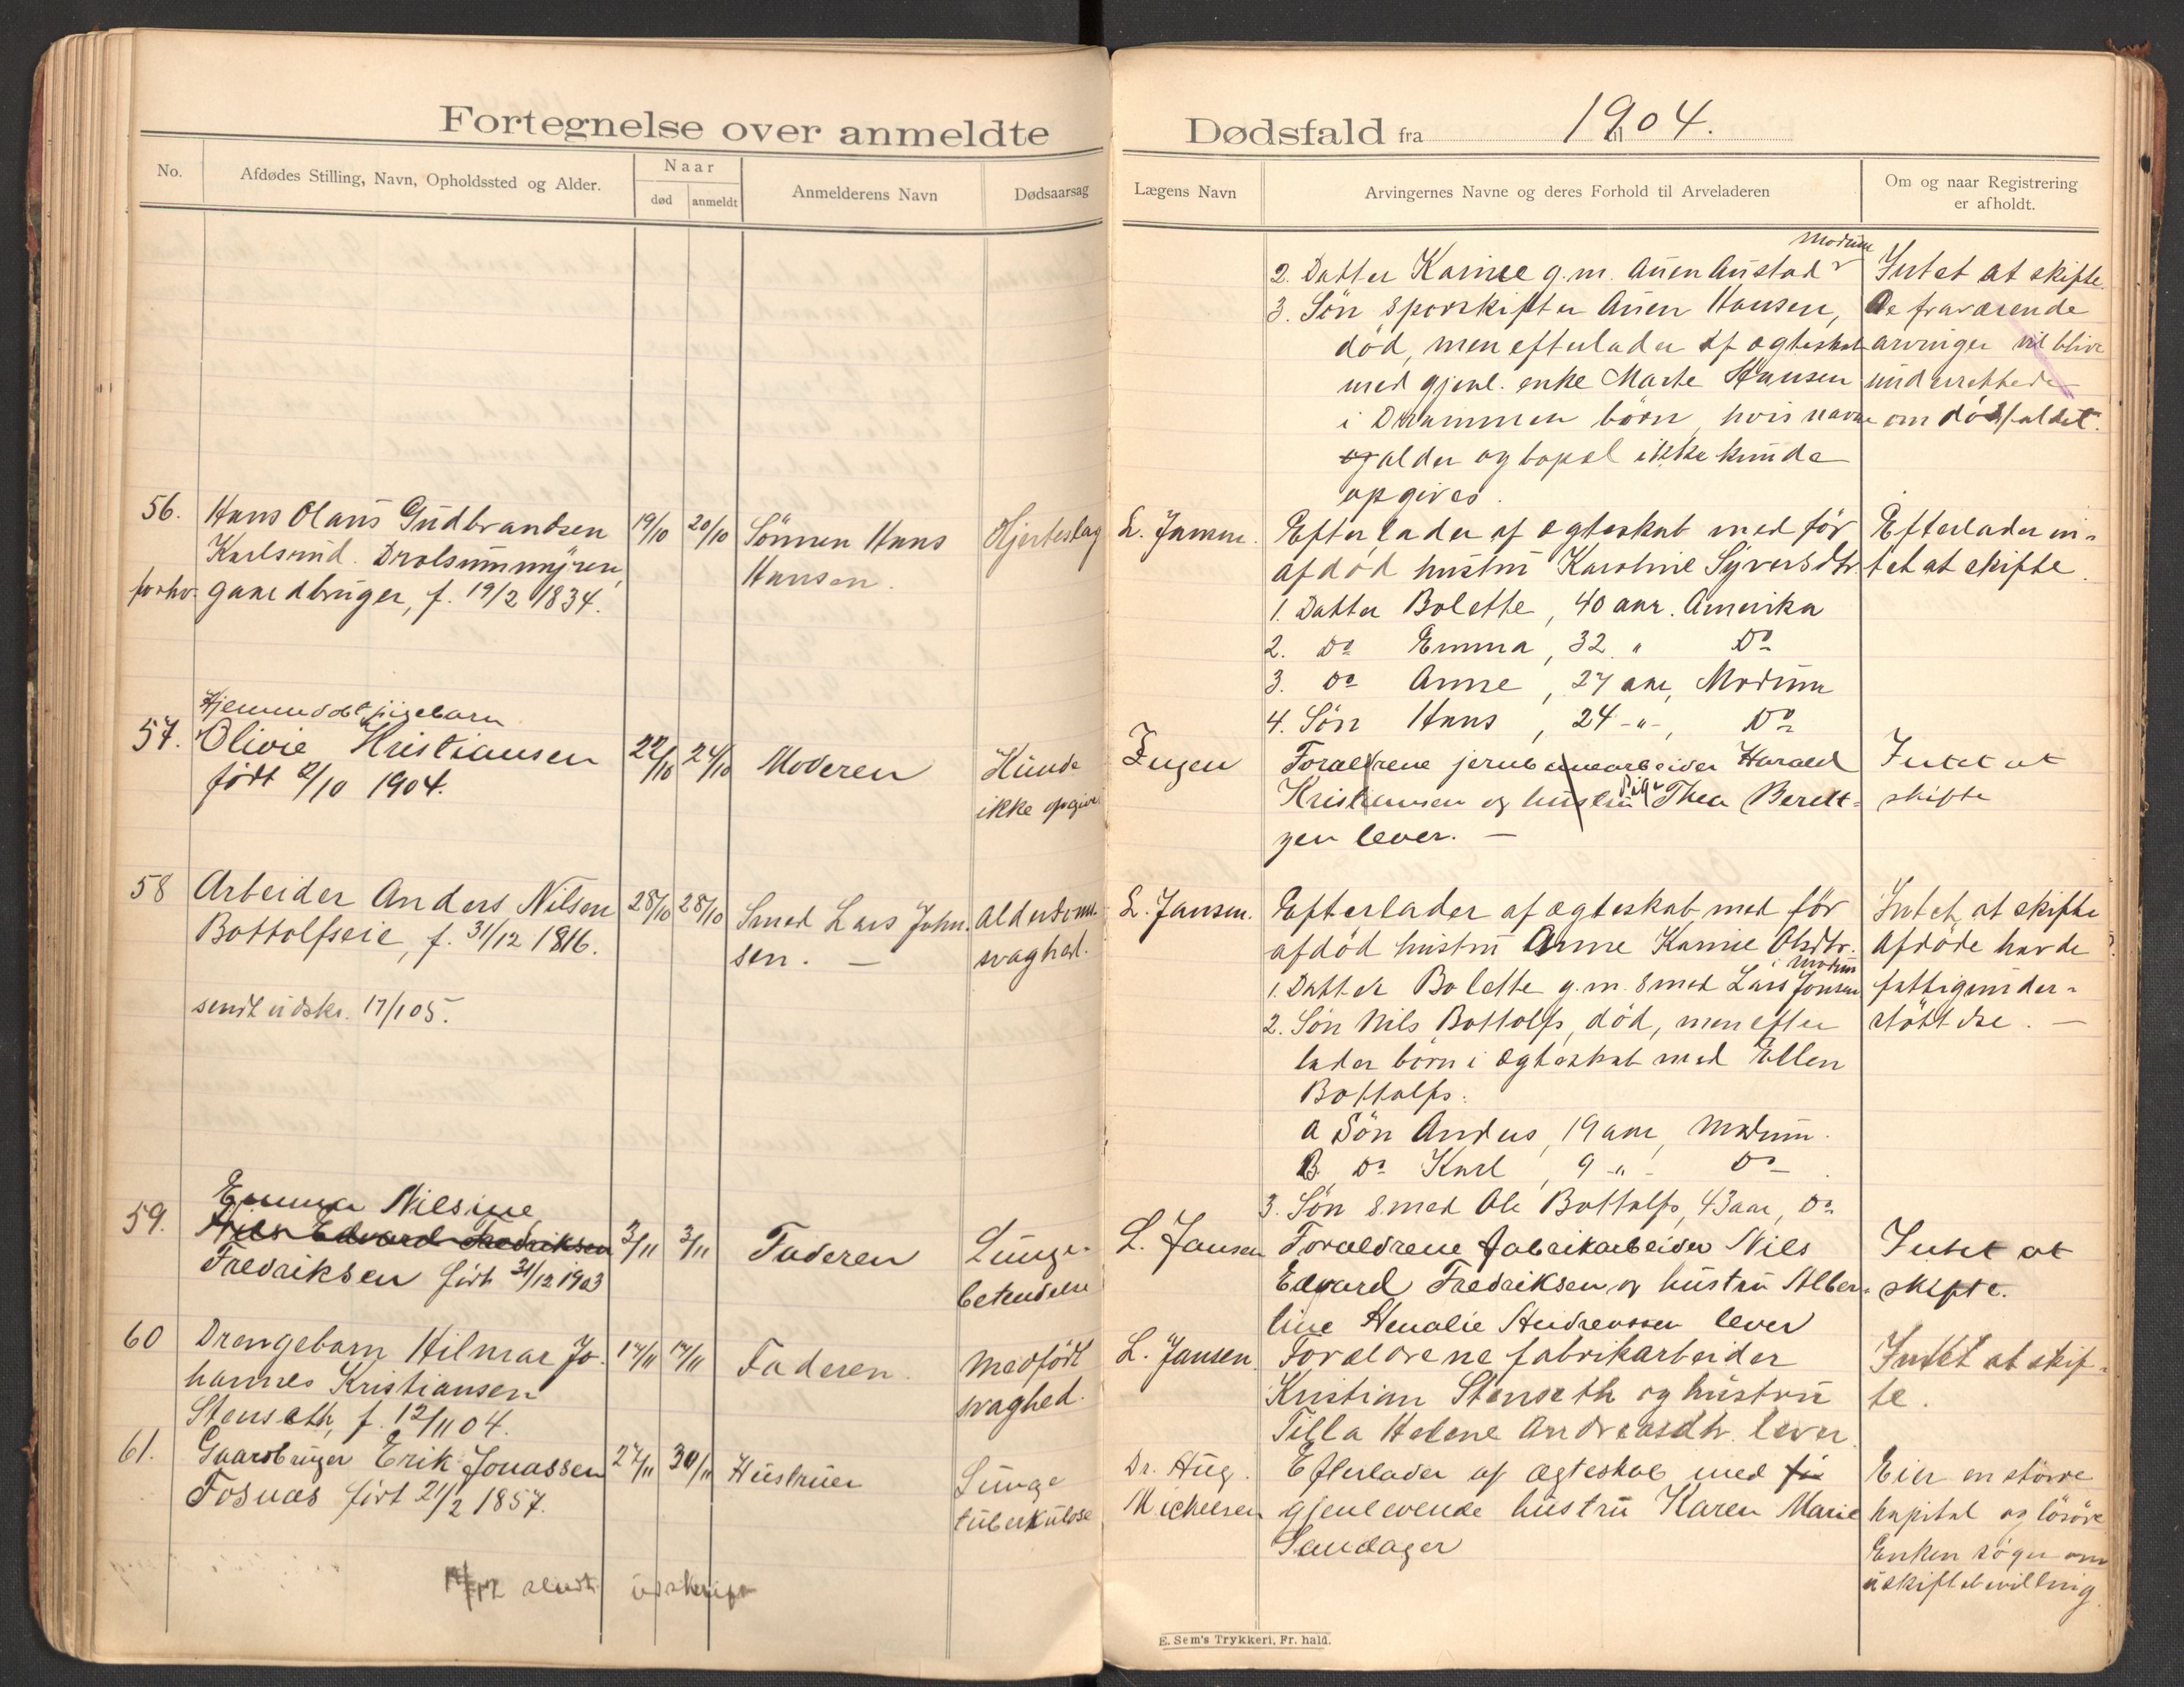 Fortegnelse over anmeldte
No.
Afdødes Stilling, Navn, Opholdssted og Alder.
Naar
død
anmeldt
Anmelderens Navn
Dødsaarsag
56.
Hans Olaus Gudbrandsen
Karlsrud. Drolsummyren,
forhv. gaardbruger, f. 19/2 1834.
19/10
20/10
Sønnen Hans
Hansen.
Hjerteslag
57.
Hjemmedøbt pigebarn
Olivie Kristiansen
født 2/10 1904.
22/10
24/10
Moderen
Kunde
ikke opgives
58
Arbeider Anders Nilsen
Bottolfseie, f. 31/12 1816.
sendt udskr. 17/1 05.
28/10
28/10
Smed Lars John-
sen. —
Alderdoms-
svaghed.
59.
Emma Nilsine
Nils Edvard Fredriksen
Fredriksen født 31/12 1903
3/11
3/11
Faderen
Lunge-
betendelse
60
Drengebarn Hilmar Jo-
hannes Kristiansen
Stenseth, f. 12/11 04.
14/11
14/11
Faderen.
Medfödt
svaghed.
61.
Gaardbruger Erik Jonassen
Fosnæs født 21/2 1857.
27/11
30/11
Hustruen
Lunge
tuberkulose
sendt udskrift
Dødsfald fra 1904.
til
Lægens Navn
Arvingernes Navne og deres Forhold til Arveladeren
Om og naar Registrering
er afholdt.
Modum
2. Datter Karine g.m. Auen Austad
3. Søn sporskifter Auen Hansen,
död, men efterlader af ægteskab
med gjenl. enke Marte Hansen
i Drammen børn, hvis navne
og alder og bopæl ikke kunde
opgives.
Intet at skifte.
De fraværende
arvinger vil blive
underrettede
om dödsfaldet.
L. Jansen.
Efterlader af ægteskab med för
afdød hustru Karoline Syversdtr
1. Datter Bolette, 40 aar. Amerika
2. Do Emma, 32 " Do
3. Do Anne, 27 aar, Modum
4. Søn Hans, 24 -"-, Do
Efterlader in-
tet at skifte.
Ingen
Forældrene jernbanearbeider Harald
Kristiansen og hustru pige Thea Beredt-
gen lever. —
Intet at
skifte
L. Jansen.
Efterlader af ægteskab med för
afdöd hustru Anne Karine Olsdtr.
i Modum
1. Datter Bolette g.m. smed Lars Jonsen
2. Søn Nils Bottolfs, död, men efter
lader börn i ægteskab med Ellen
Bottolfs:
a Søn Anders, 19 aar, Modum.
B. Do Karl, 9 -"- Do
3. Søn smed Ole Bottolfs, 43 aar, Do
Intet at skifte
Afdöde havde
fattigunder-
støttelse. —
L. Jansen
Forældrene fabrikarbeider Nils
Edvard Fredriksen og hustru Alber-
tine lever
Intet at
skifte.
L. Jansen.
Forældrene fabrikarbeider
Kristian Stenseth og hustru
Tilla Helene Andreasdtr. lever.
Intet at skif-
te.
Dr. Aug.
Michelsen
Efterlader af ægteskab med
gjenlevende hustru Karen Marie
Sandager
Eier en större
kapital og lösöre
Enken söger om
uskiftebevilling.
E. Sem's Trykkeri, Fr. hald.